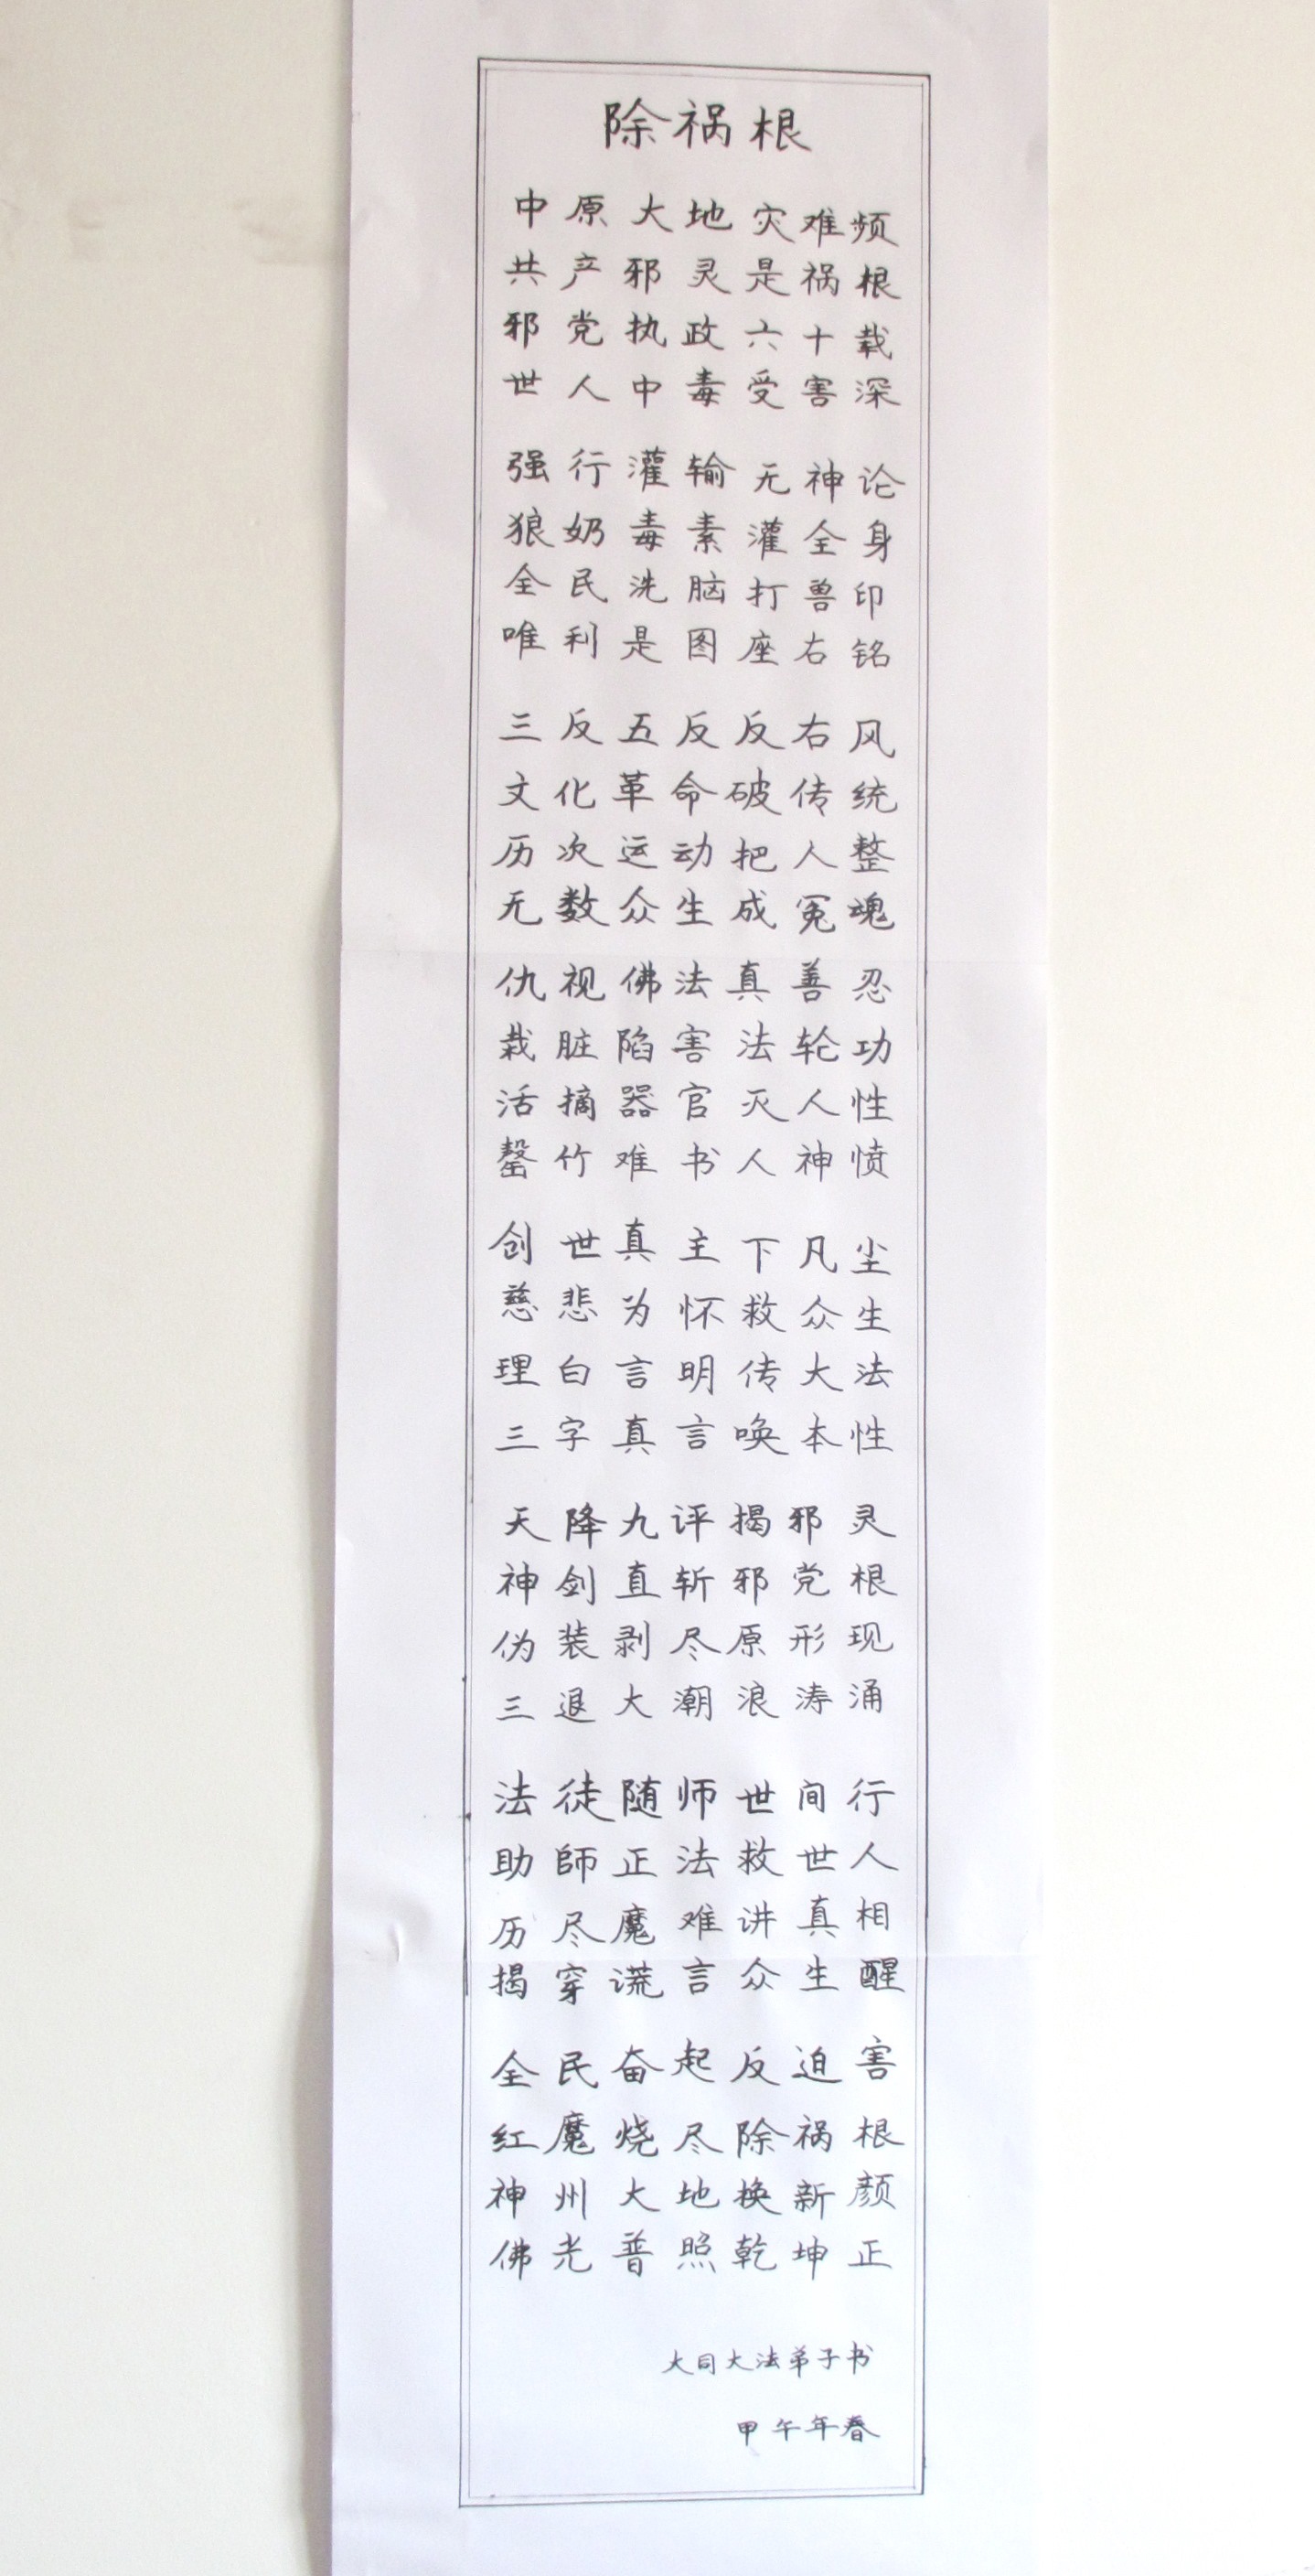 除祸根
中原大地灾难频
共产邪灵是祸根
邪党执政六十载
世人中毒受害深
强行灌输无神论
狼奶毒素灌全身
全民洗脑打兽印
唯利是图座右铭
三反五反反右风
文化革命破传统
历次运动把人整
无数众生成冤魂
仇视佛法真善忍
栽脏陷害法轮功
活摘器官灭人性
罄竹难书人神愤
创世真主下凡尘
慈悲为怀救众生
理白言明传大法
三字真言唤本性
天降九评揭邪灵
神剑直斩邪党根
伪装剥尽原形现
三退大潮浪涛涌
法徒随师世间行
助師正法救世人
历尽魔难讲真相
揭穿谎言众生醒
全民奋起反迫害
红魔烧尽除祸根
神州大地换新颜
佛光普照乾坤正
大同大法弟子书
甲午年春